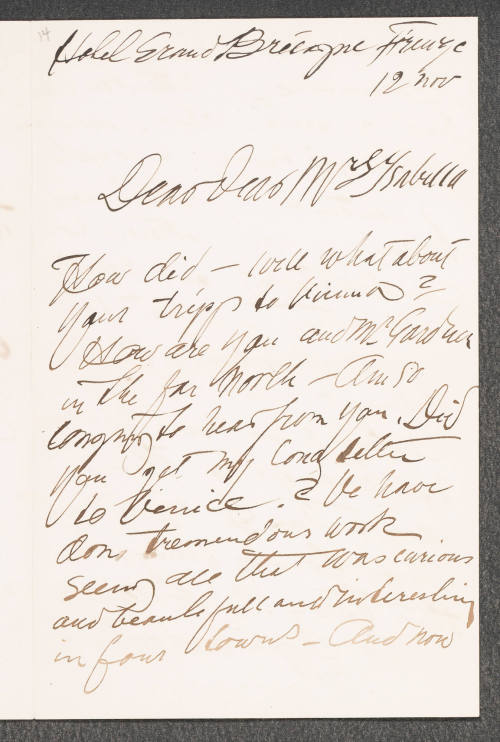 14
Hotel Grand Bretagne Firenze
12 nov
Dear dear Mrs Isabella
How did – well what about
your tripp to Vienna?
How are you and Mr Gardner
in the far North – Am so
longing to hear from you. Did
you get my long letter
to Venice.? We have
done tremendous work
seeing all that was curious
and beautifull and interesting
in four towns – And now